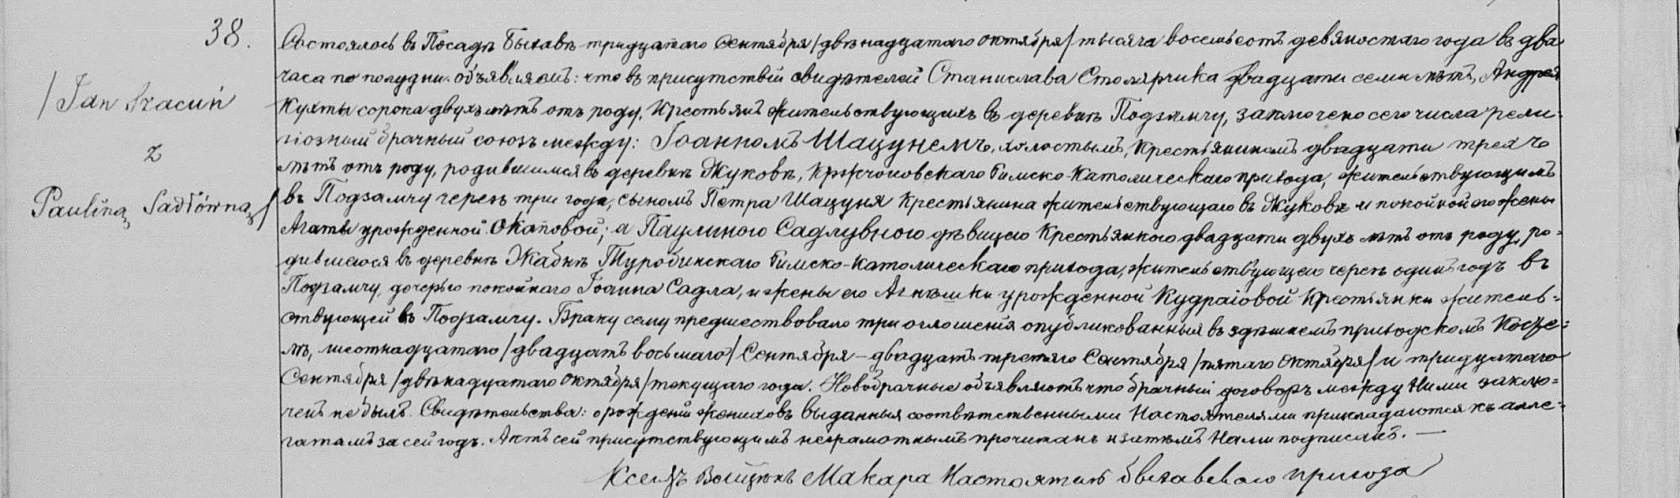 38.
/Jan Szacuń
z
Paulina Sadłówna/
Состоялось въ Посадѣ Быхавѣ тридцатаго Сентября /двѣнадцатаго Октября/ тысяча восемьсотъ девяностаго года въ два
часа по полудни. объявляемъ: что въ присутствіи свидѣтелей Станислава Столярчика двадцати семи лѣтъ, Андрея
Кухты сорока двухъ лѣтъ отъ роду, Крестьянъ жительствующихъ въ деревнѣ Подзамчу, заключено сего числа рели-
гіозный брачный союзъ между: Іоанномъ Шацунемъ, холостымъ, крестьяниномъ двадцати трехъ
лѣтъ отъ роду, родившимся въ деревнѣ Жуковѣ, Римско-Католическаго прихода, жительствующимъ
въ Подзамчу черезъ три года, сыномъ Петра Шацуня Крестьянина жительствующаго въ Жуковѣ и покойной его жены
Агаты урожденной; а Паулиною Садлувною дѣвицею Крестьянкою двадцати двухъ лѣтъ отъ роду, ро-
дившеюся въ деревнѣ Жабнѣ Туробинскаго Римско-Католическаго прихода, жительствующею черезъ одинъ годъ въ
Подзамчу, дочерью покойнаго Іоанна Садла, и жены его Агнѣшки урожденной Крестьянки житель-
ствующей въ Подзамчу. Браку сему предшествовало три оглошенія опубликованныя въ здѣшнемъ приходскомъ Косце-
лѣ, шестнадцатаго /двадцать восьмаго/ Сентября – двадцать третяго Сентября /пятаго Октября/ и тридцатаго
Сентября /двѣнадцатаго Октября/ текущаго года. Новобрачные объявляютъ что брачный договоръ между ними заклю-
ченъ не былъ. Свидѣтельства: о рожденіи жениховъ выданныя соотвѣтственными Настоятелями прикладаются къ алле-
гатамъ за сей годъ. Актъ сей присутствующимъ неграмотнымъ прочитанъ и затѣмъ Нами подписанъ. —
Ксендзъ Войцѣхъ Макара Настоятель Быхавскаго прихода